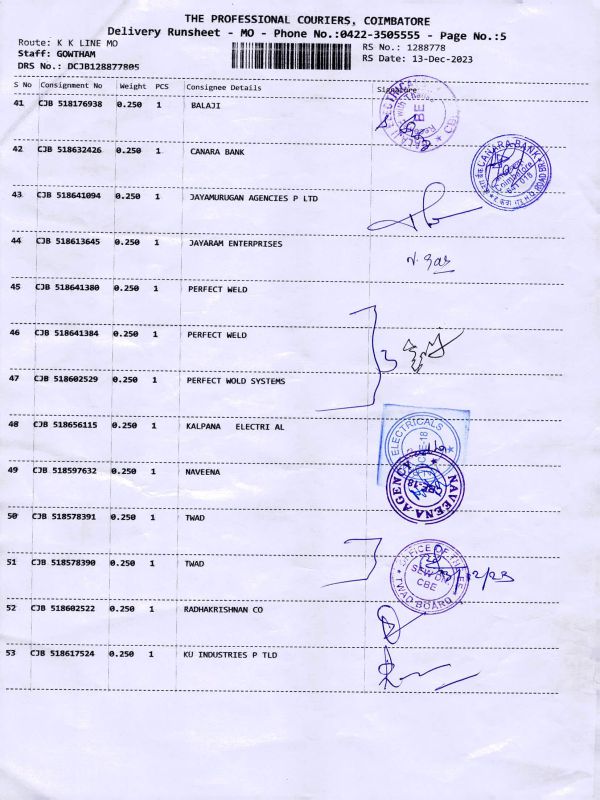 THE PROFESSIONAL COURIERS, COIMBATORE
Delivery Runsheet - MO - Phone No.:0422-3505555 - Page No.:5
Route: K K LINE MO
RS No.: 1288778
Staff: GOWTHAM
RS Date: 13-Dec-2023
DRS No.: DCJB128877805
S No Consignment No Weight PCS Consignee Details Signature
41 CJB 518176938 0.250 1 BALAJI
42 CJB 518632426 0.250 1 CANARA BANK
CANARA BANK
Coimbatore
641 018
43 CJB 518641094 0.250 1 JAYAMURUGAN AGENCIES P LTD
44 CJB 518613645 0.250 1 JAYARAM ENTERPRISES
45 CJB 518641380 0.250 1 PERFECT WELD
46 CJB 518641384 0.250 1 PERFECT WELD
3
47 CJB 518602529 0.250 1 PERFECT WOLD SYSTEMS
48 CJB 518656115 0.250 1 KALPANA ELECTRI AL
ELECTRICALS
49 CJB 518597632 0.250 1 NAVEENA
NAVEENA AGENCY
CBE-18
50 CJB 518578391 0.250 1 TWAD
51 CJB 518578390 0.250 1 TWAD
OFFICE OF THE
CBE
TWAD BOARD
52 CJB 518602522 0.250 1 RADHAKRISHNAN CO
53 CJB 518617524 0.250 1 KU INDUSTRIES P TLD